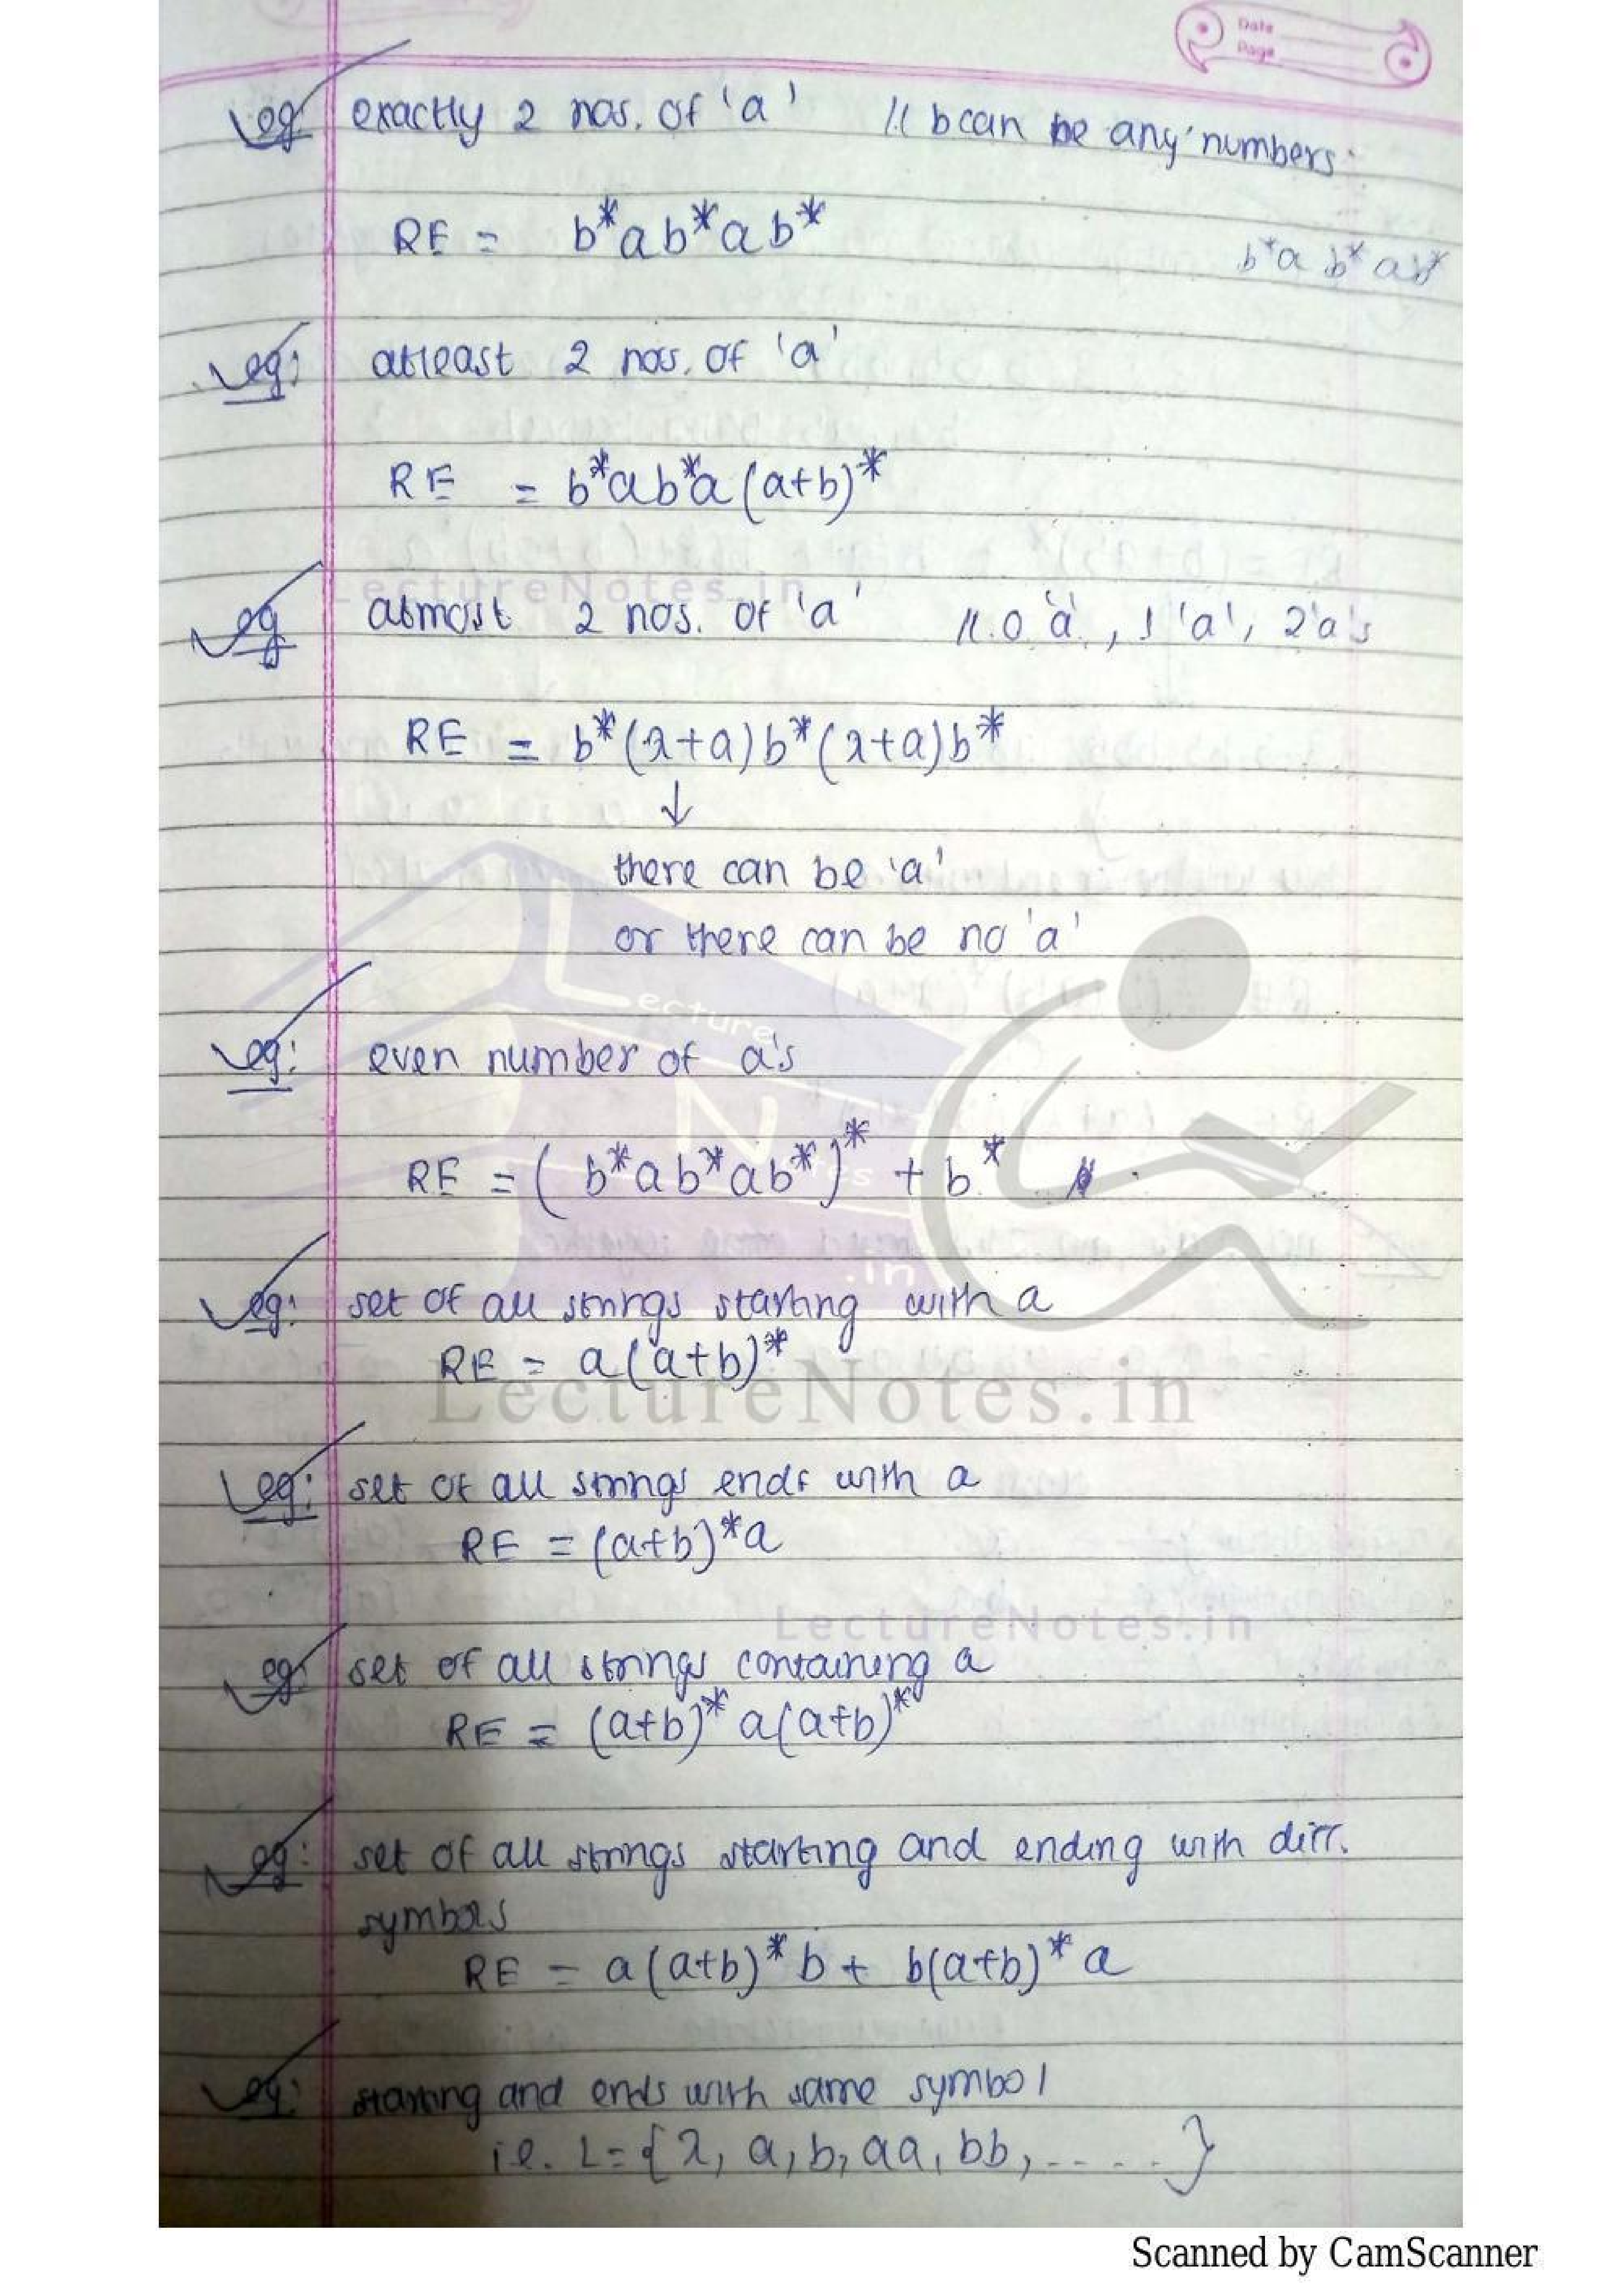 Date
Page
eg exactly 2 nos. of 'a' // b can be any numbers.
RE = b*ab*ab*
b*a b* ab*
eg: atleast 2 nos. of 'a'
RE = b*ab*a(a+b)*
LectureNotes.in
eg atmost 2 nos. of 'a' // 0 'a', 1 'a', 2 'a's
RE = b*(λ+a)b*(λ+a)b*
↓
there can be 'a'
or there can be no 'a'
Lecture
eg: even number of a's
Notes
RE = (b*ab*ab*)* + b*
.in
eg: set of all strings starting with a
RE = a(a+b)*
LectureNotes.in
eg: set of all strings ends with a
RE = (a+b)*a
LectureNotes.in
eg: set of all strings containing a
RE = (a+b)* a(a+b)*
eg: set of all strings starting and ending with diff.
symbols
RE = a(a+b)* b + b(a+b)* a
eg: starting and ends with same symbol
i.e. L = {λ, a, b, aa, bb, - - - - }
Scanned by CamScanner